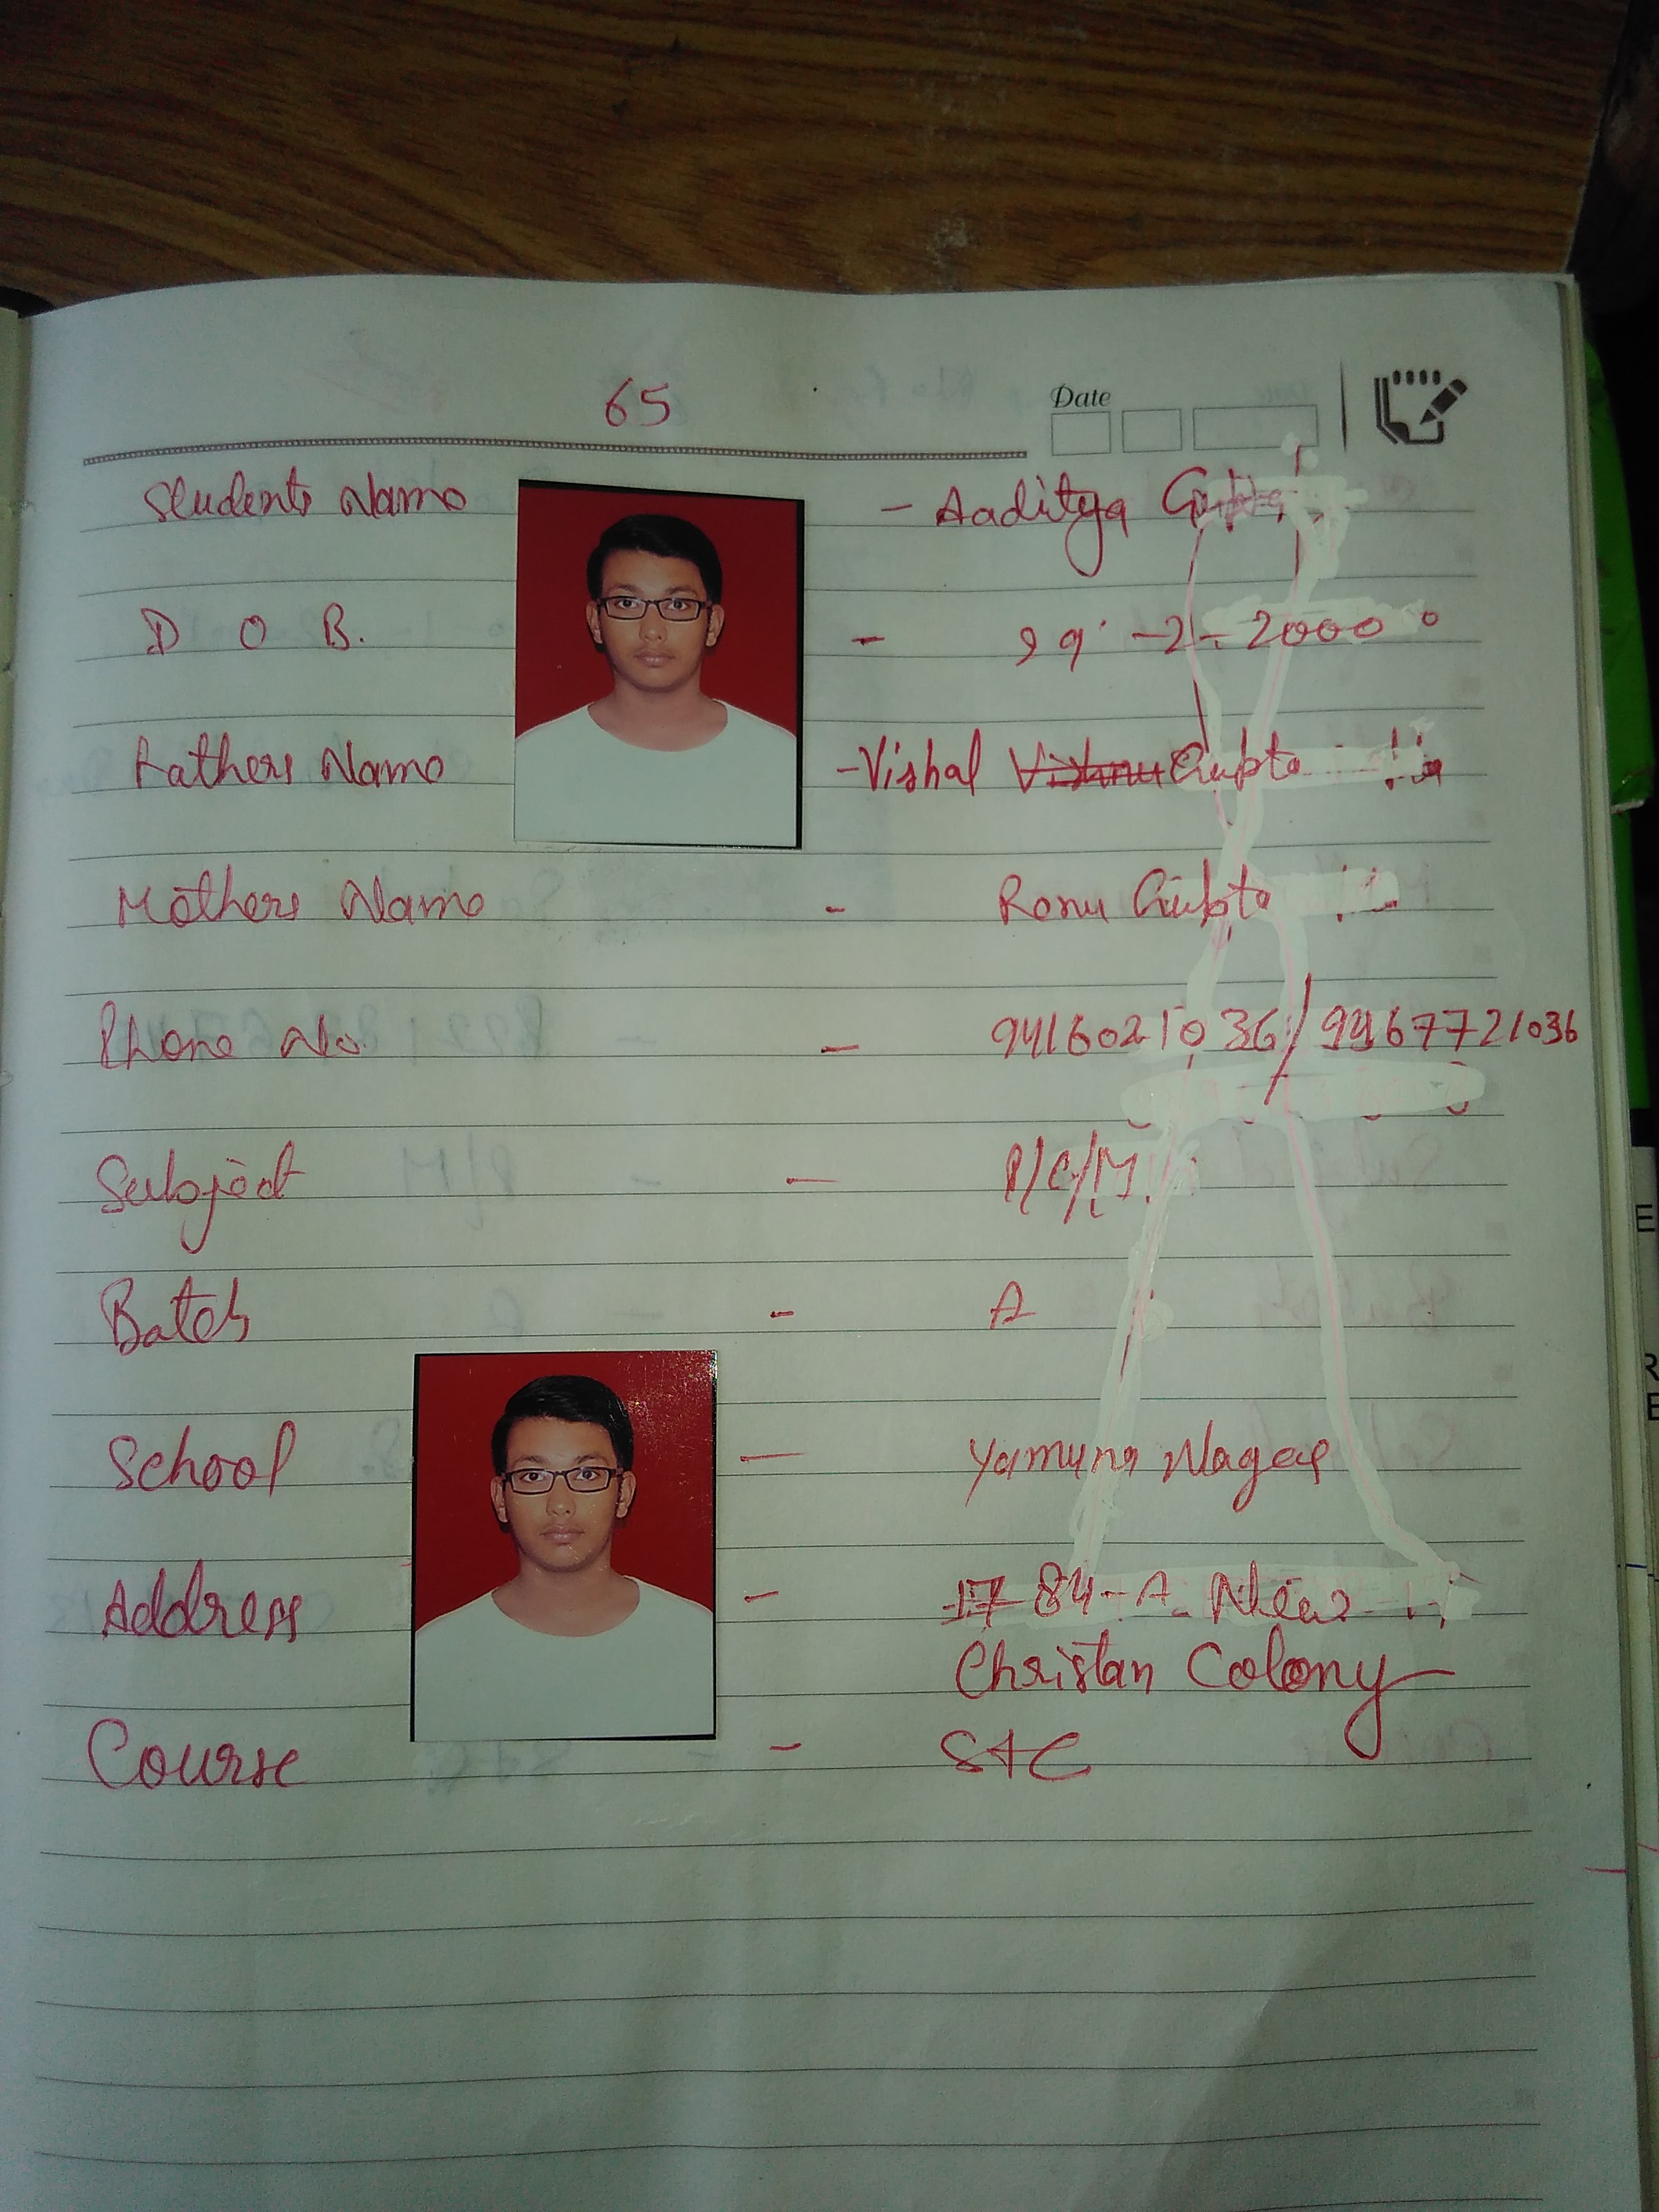 65
Date
Students Name - Aaditya Gupta
D O B. - 29 -2- 2000
Fathers Name - Vishal Vishnu Gupta
Mothers Name - Renu Gupta
Phone No. - 9416021036/9467721036
Subject - P/C/M
Batch - A
School - Yamuna Nagar
Address - 17 84-A New
Christan Colony
Course -